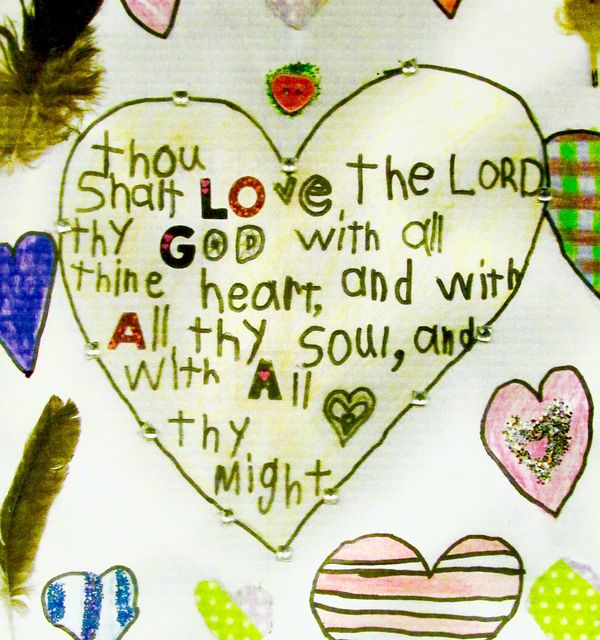 thou
Shalt LOve the LORD
thy GOD with all
thine heart, and with
All thy Soul, and
with All
thy
Might